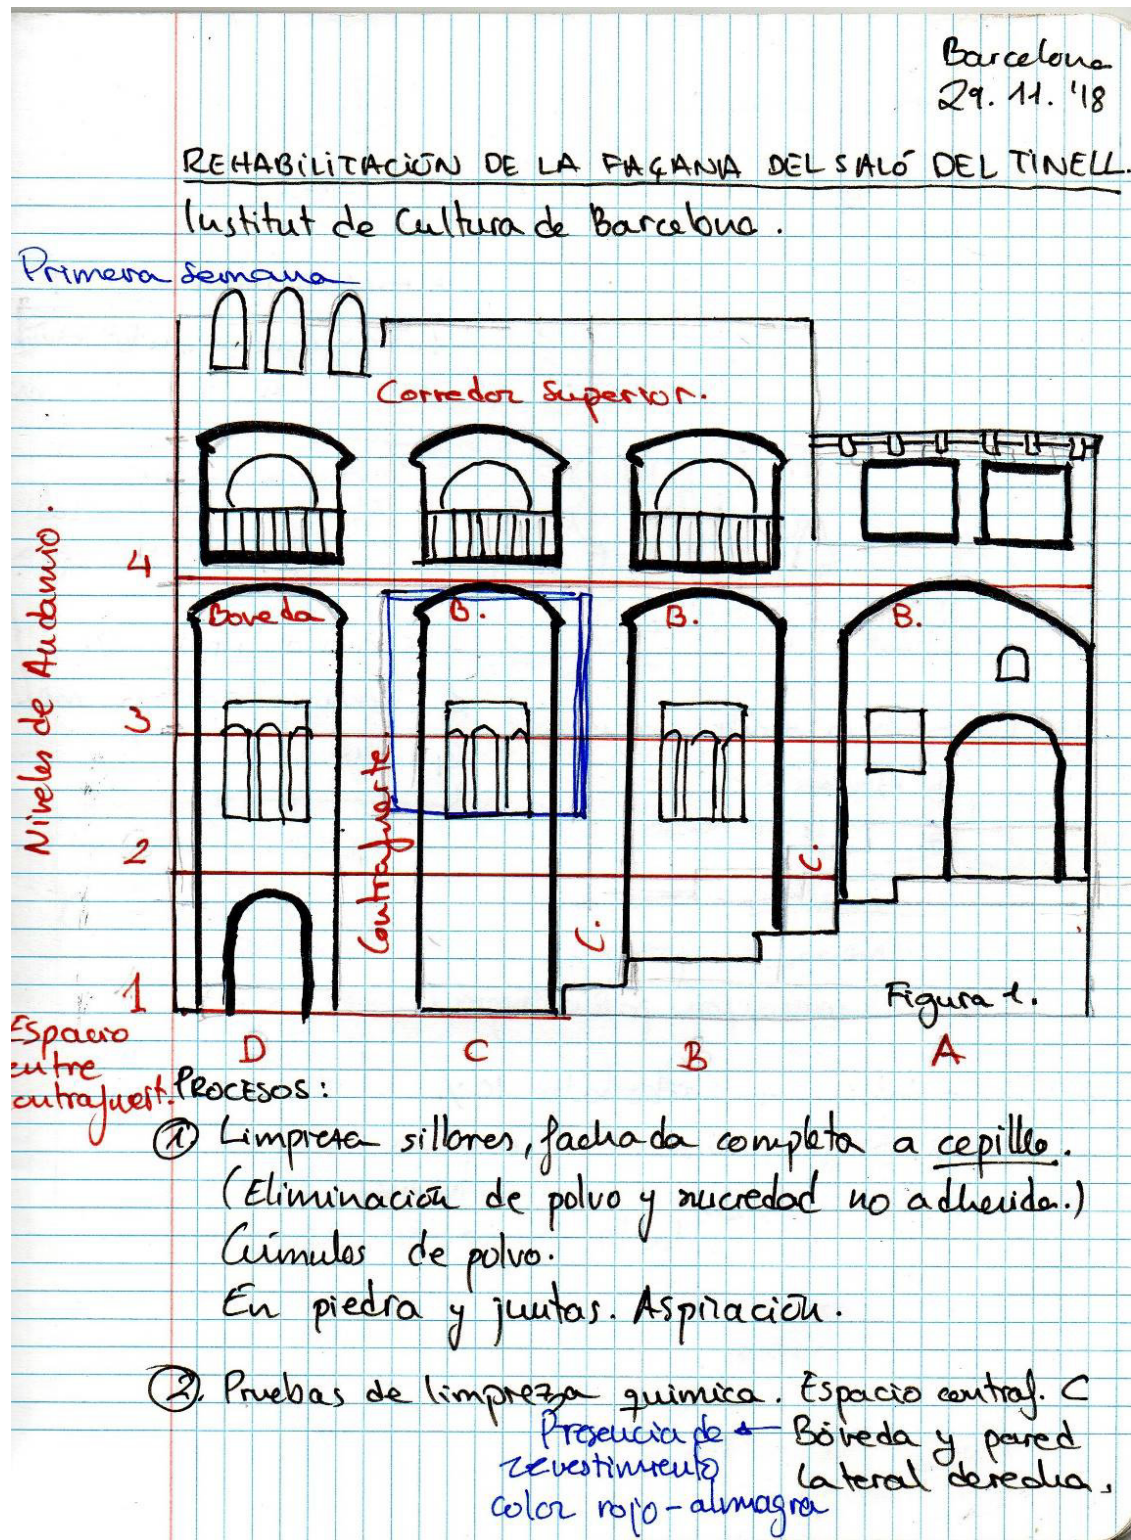 Barcelona
29. 11. '18
REHABILITACIÓN DE LA FAÇANA DEL SALÓ DEL TINELL.
Institut de Cultura de Barcelona.
Primera Semana
Corredor Superior.
Niveles de Andamio.
4
Boveda
B.
B.
B.
3
Contrafuerte
2
C.
C.
1
Figura 1.
Espacio
entre
contrafuert.
D
C
B
A
PROCESOS:
1 Limpieza sillares, fachada completa a cepillo.
(Eliminación de polvo y sucredad no adherida.)
Cúmulos de polvo.
En piedra y juntas. Aspiración.
2. Pruebas de limpieza química. Espacio contraf. C
Presencia de ← Bóveda y pared
revestimiento lateral derecha.
color rojo-almagra